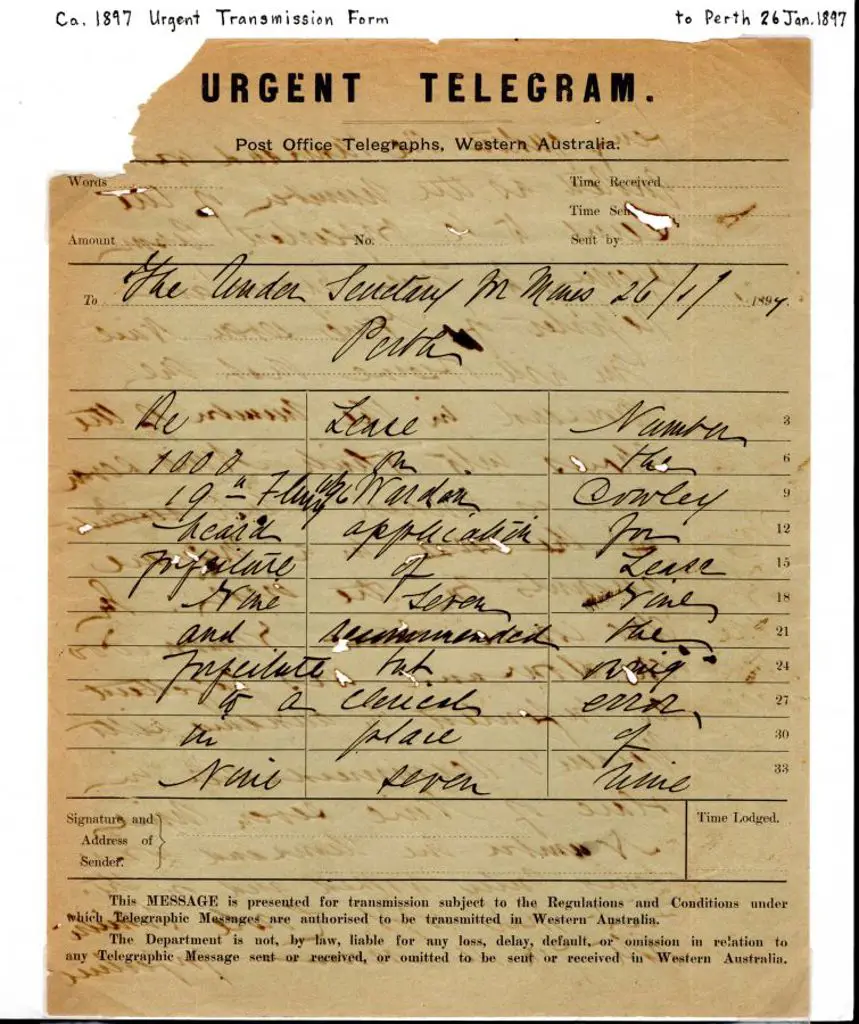 Ca. 1897 Urgent Transmission Form to Perth 26 Jan. 1897
URGENT TELEGRAM.
Post Office Telegraphs, Western Australia.
Words Time Received
Time Sen
Amount No. Sent by
To The Under Secretary for Mines 26/1/ 1897.
Perth
Re Lease Number 3
1000 on the 6
19th 96 Warden Cowley 9
heard application for 12
forfeiture of Lease 15
Nine Seven Nine 18
and recommended the 21
forfeiture but owing 24
to a clerical error, 27
in place of 30
Nine seven nine 33
Signature and Time Lodged.
Address of
Sender.
This MESSAGE is presented for transmission subject to the Regulations and Conditions under
which Telegraphic Messages are authorised to be transmitted in Western Australia.
The Department is not, by law, liable for any loss, delay, default, or omission in relation to
any Telegraphic Message sent or received, or omitted to be sent or received in Western Australia.